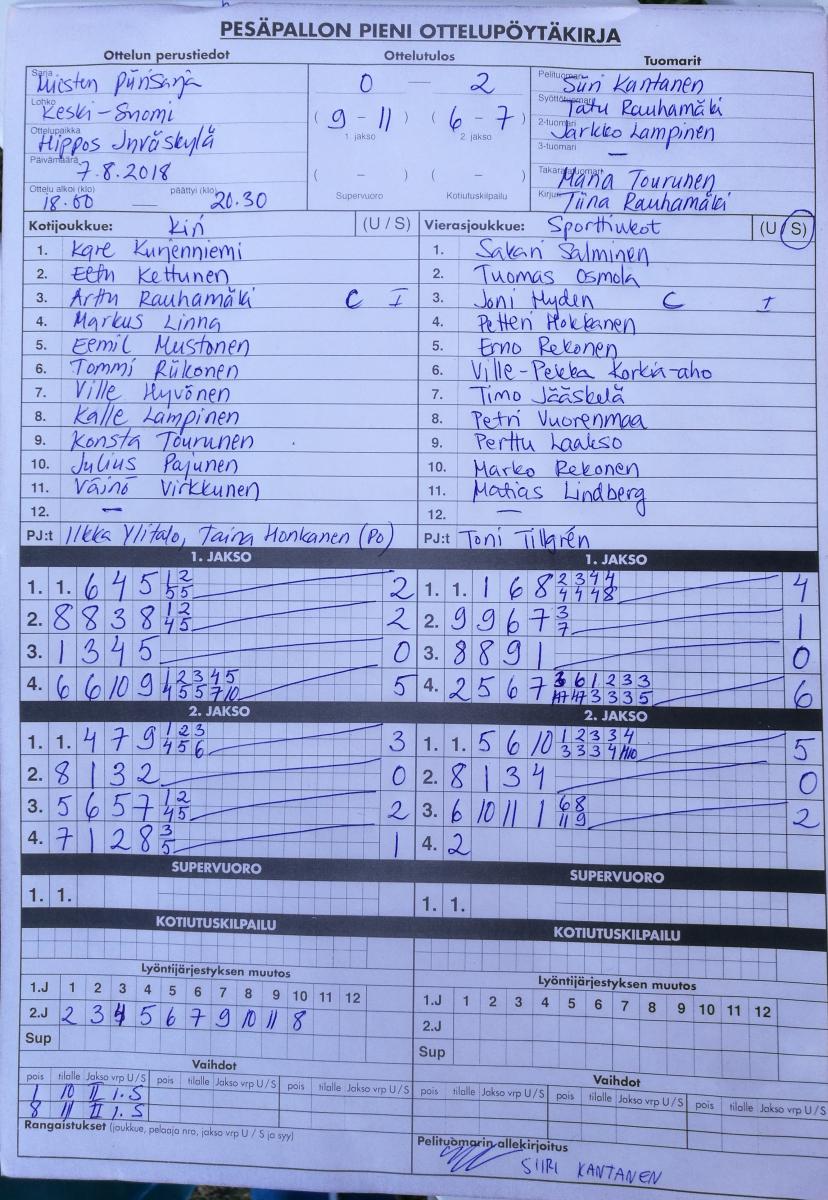 PESÄPALLON PIENI OTTELUPÖYTÄKIRJA
Ottelun perustiedot
Sarja Miesten Piirisarja
Lohko Keski-Suomi
Ottelupaikka Hippos Jyväskylä
Päivämäärä 7.8.2018
Ottelu alkoi (klo) 18.00 — päättyi (klo) 20.30
Ottelutulos
0 — 2
( 9 - 11 ) ( 6 - 7 )
1. jakso 2. jakso
( - ) ( - )
Supervuoro Kotiutuskilpailu
Tuomarit
Pelituomari Siiri Kantanen
Syöttötuomari Tatu Rauhamäki
2-tuomari Jarkko Lampinen
3-tuomari —
Takarajatuomari Maria Tourunen
Kirjuri Tiina Rauhamäki
Kotijoukkue: Kiri (U / S)
1. Kare Kurjenniemi
2. Eetu Kettunen
3. Arttu Rauhamäki C I
4. Markus Linna
5. Eemil Mustonen
6. Tommi Riikonen
7. Ville Hyvönen
8. Kalle Lampinen
9. Konsta Tourunen
10. Julius Pajunen
11. Väinö Virkkunen
12. —
PJ:t Ilkka Ylitalo, Taina Honkanen (Po)
Vierasjoukkue: Sporttiukot (U / S)
1. Sakari Salminen
2. Tuomas Osmola
3. Joni Hyden C I
4. Petteri Hokkanen
5. Erno Rekonen
6. Ville-Pekka Korkia-aho
7. Timo Jääskelä
8. Petri Vuorenmaa
9. Perttu Laakso
10. Marko Rekonen
11. Matias Lindberg
12. —
PJ:t Toni Tillgrén
1. JAKSO
1. 1. 6 4 5 1 2 2
5 5
2. 8 8 3 8 1 2 2
4 5
3. 1 3 4 5 0
4. 6 6 10 9 1 2 3 4 5 5
4 5 5 7 10
1. JAKSO
1. 1. 1 6 8 2 3 4 4 4
4 4 4 8
2. 9 9 6 7 3 1
7
3. 8 8 9 1 0
4. 2 5 6 7 3 6 1 2 3 3 6
3 3 3 5
2. JAKSO
1. 1. 4 7 9 1 2 3 3
4 5 6
2. 8 1 3 2 0
3. 5 6 5 7 1 2 2
4 5
4. 7 1 2 8 3 1
5
2. JAKSO
1. 1. 5 6 10 1 2 3 3 4 5
3 3 3 4 10
2. 8 1 3 4 0
3. 6 10 11 1 6 8 2
11 9
4. 2
SUPERVUORO
1. 1.
SUPERVUORO
1. 1.
KOTIUTUSKILPAILU
KOTIUTUSKILPAILU
Lyöntijärjestyksen muutos
1.J 1 2 3 4 5 6 7 8 9 10 11 12
2.J 2 3 4 5 6 7 9 10 11 8
Sup
Lyöntijärjestyksen muutos
1.J 1 2 3 4 5 6 7 8 9 10 11 12
2.J
Sup
Vaihdot
pois tilalle Jakso vrp U / S pois tilalle Jakso vrp U / S pois tilalle Jakso vrp U / S
1 10 II 1. S
8 11 II 1. S
Vaihdot
pois tilalle Jakso vrp U / S pois tilalle Jakso vrp U / S pois tilalle Jakso vrp U / S
Rangaistukset (joukkue, pelaaja nro, jakso vrp U / S ja syy)
Pelituomarin allekirjoitus
SIIRI KANTANEN